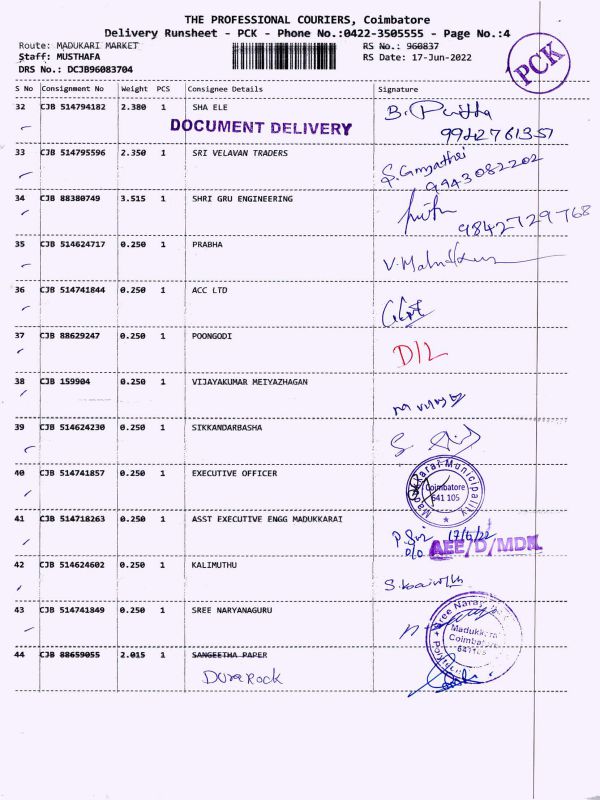 THE PROFESSIONAL COURIERS, Coimbatore
Delivery Runsheet - PCK - Phone No.:0422-3505555 - Page No.:4
Route: MADUKARI MARKET RS No.: 960837
Staff: MUSTHAFA RS Date: 17-Jun-2022
DRS No.: DCJB96083704
PCK
S No Consignment No Weight PCS Consignee Details Signature
32 CJB 514794182 2.380 1 SHA ELE
DOCUMENT DELIVERY 9942761351
33 CJB 514795596 2.350 1 SRI VELAVAN TRADERS
9943082202
34 CJB 88380749 3.515 1 SHRI GRU ENGINEERING
9842729768
35 CJB 514624717 0.250 1 PRABHA
36 CJB 514741844 0.250 1 ACC LTD
37 CJB 88629247 0.250 1 POONGODI
D/L
38 CJB 159904 0.250 1 VIJAYAKUMAR MEIYAZHAGAN
39 CJB 514624230 0.250 1 SIKKANDARBASHA
40 CJB 514741857 0.250 1 EXECUTIVE OFFICER
Madukkarai Municipality
Coimbatore
641 105
41 CJB 514718263 0.250 1 ASST EXECUTIVE ENGG MADUKKARAI
17/6/22
AEE/D/MDK
42 CJB 514624602 0.250 1 KALIMUTHU
43 CJB 514741849 0.250 1 SREE NARYANAGURU
Madukkarai
Coimbatore
641105
44 CJB 88659055 2.015 1 SANGEETHA PAPER
DuraRock